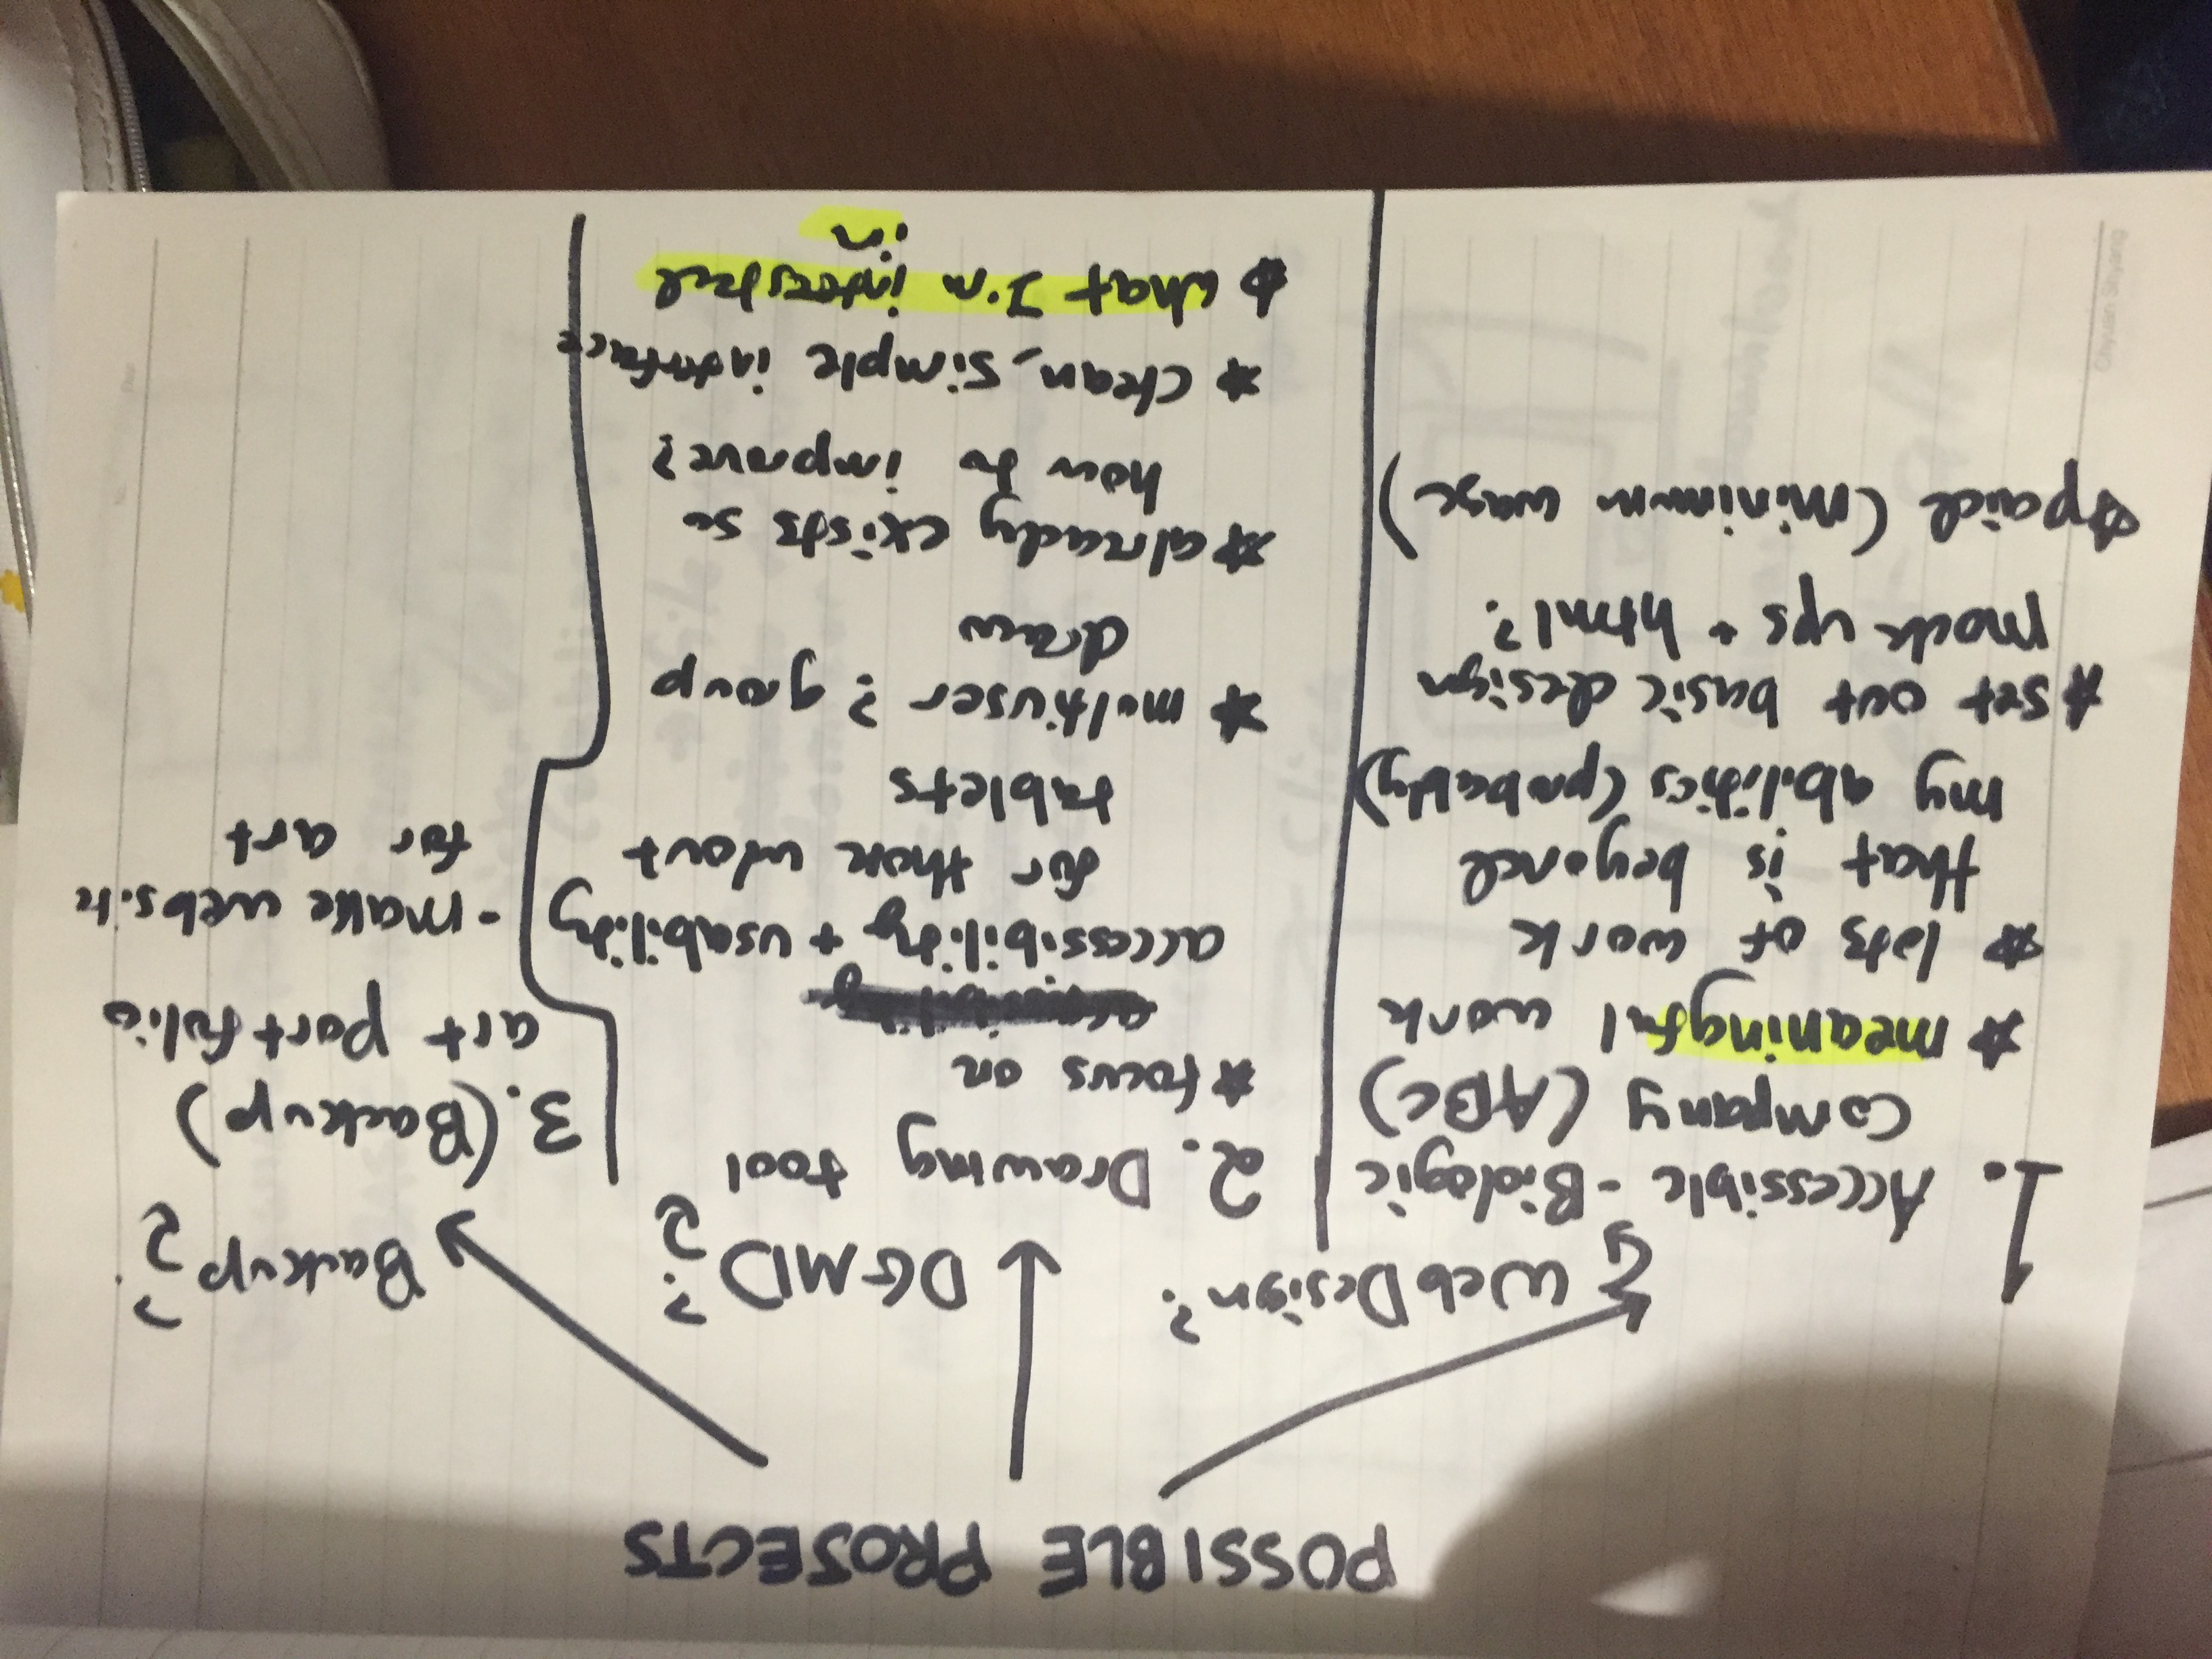 POSSIBLE PROSECTS
Web Design?
1. Accessible-Biologic
Company (ABC)
* meaningful work
* lots of work
that is beyond
my abilities (probably)
* set out basic design
mock ups + html?
* paid (minimum wage)
DGMD?
2. Drawing tool
* focus on
accessibility + usability
for those w/out
tablets
* multiuser? group
draw
* already exists so
how to improve?
* clean, simple interface
* what I'm interested
in
Backup?
3. (Backup)
art portfolio
- make website
for art
Chyuan Shyang